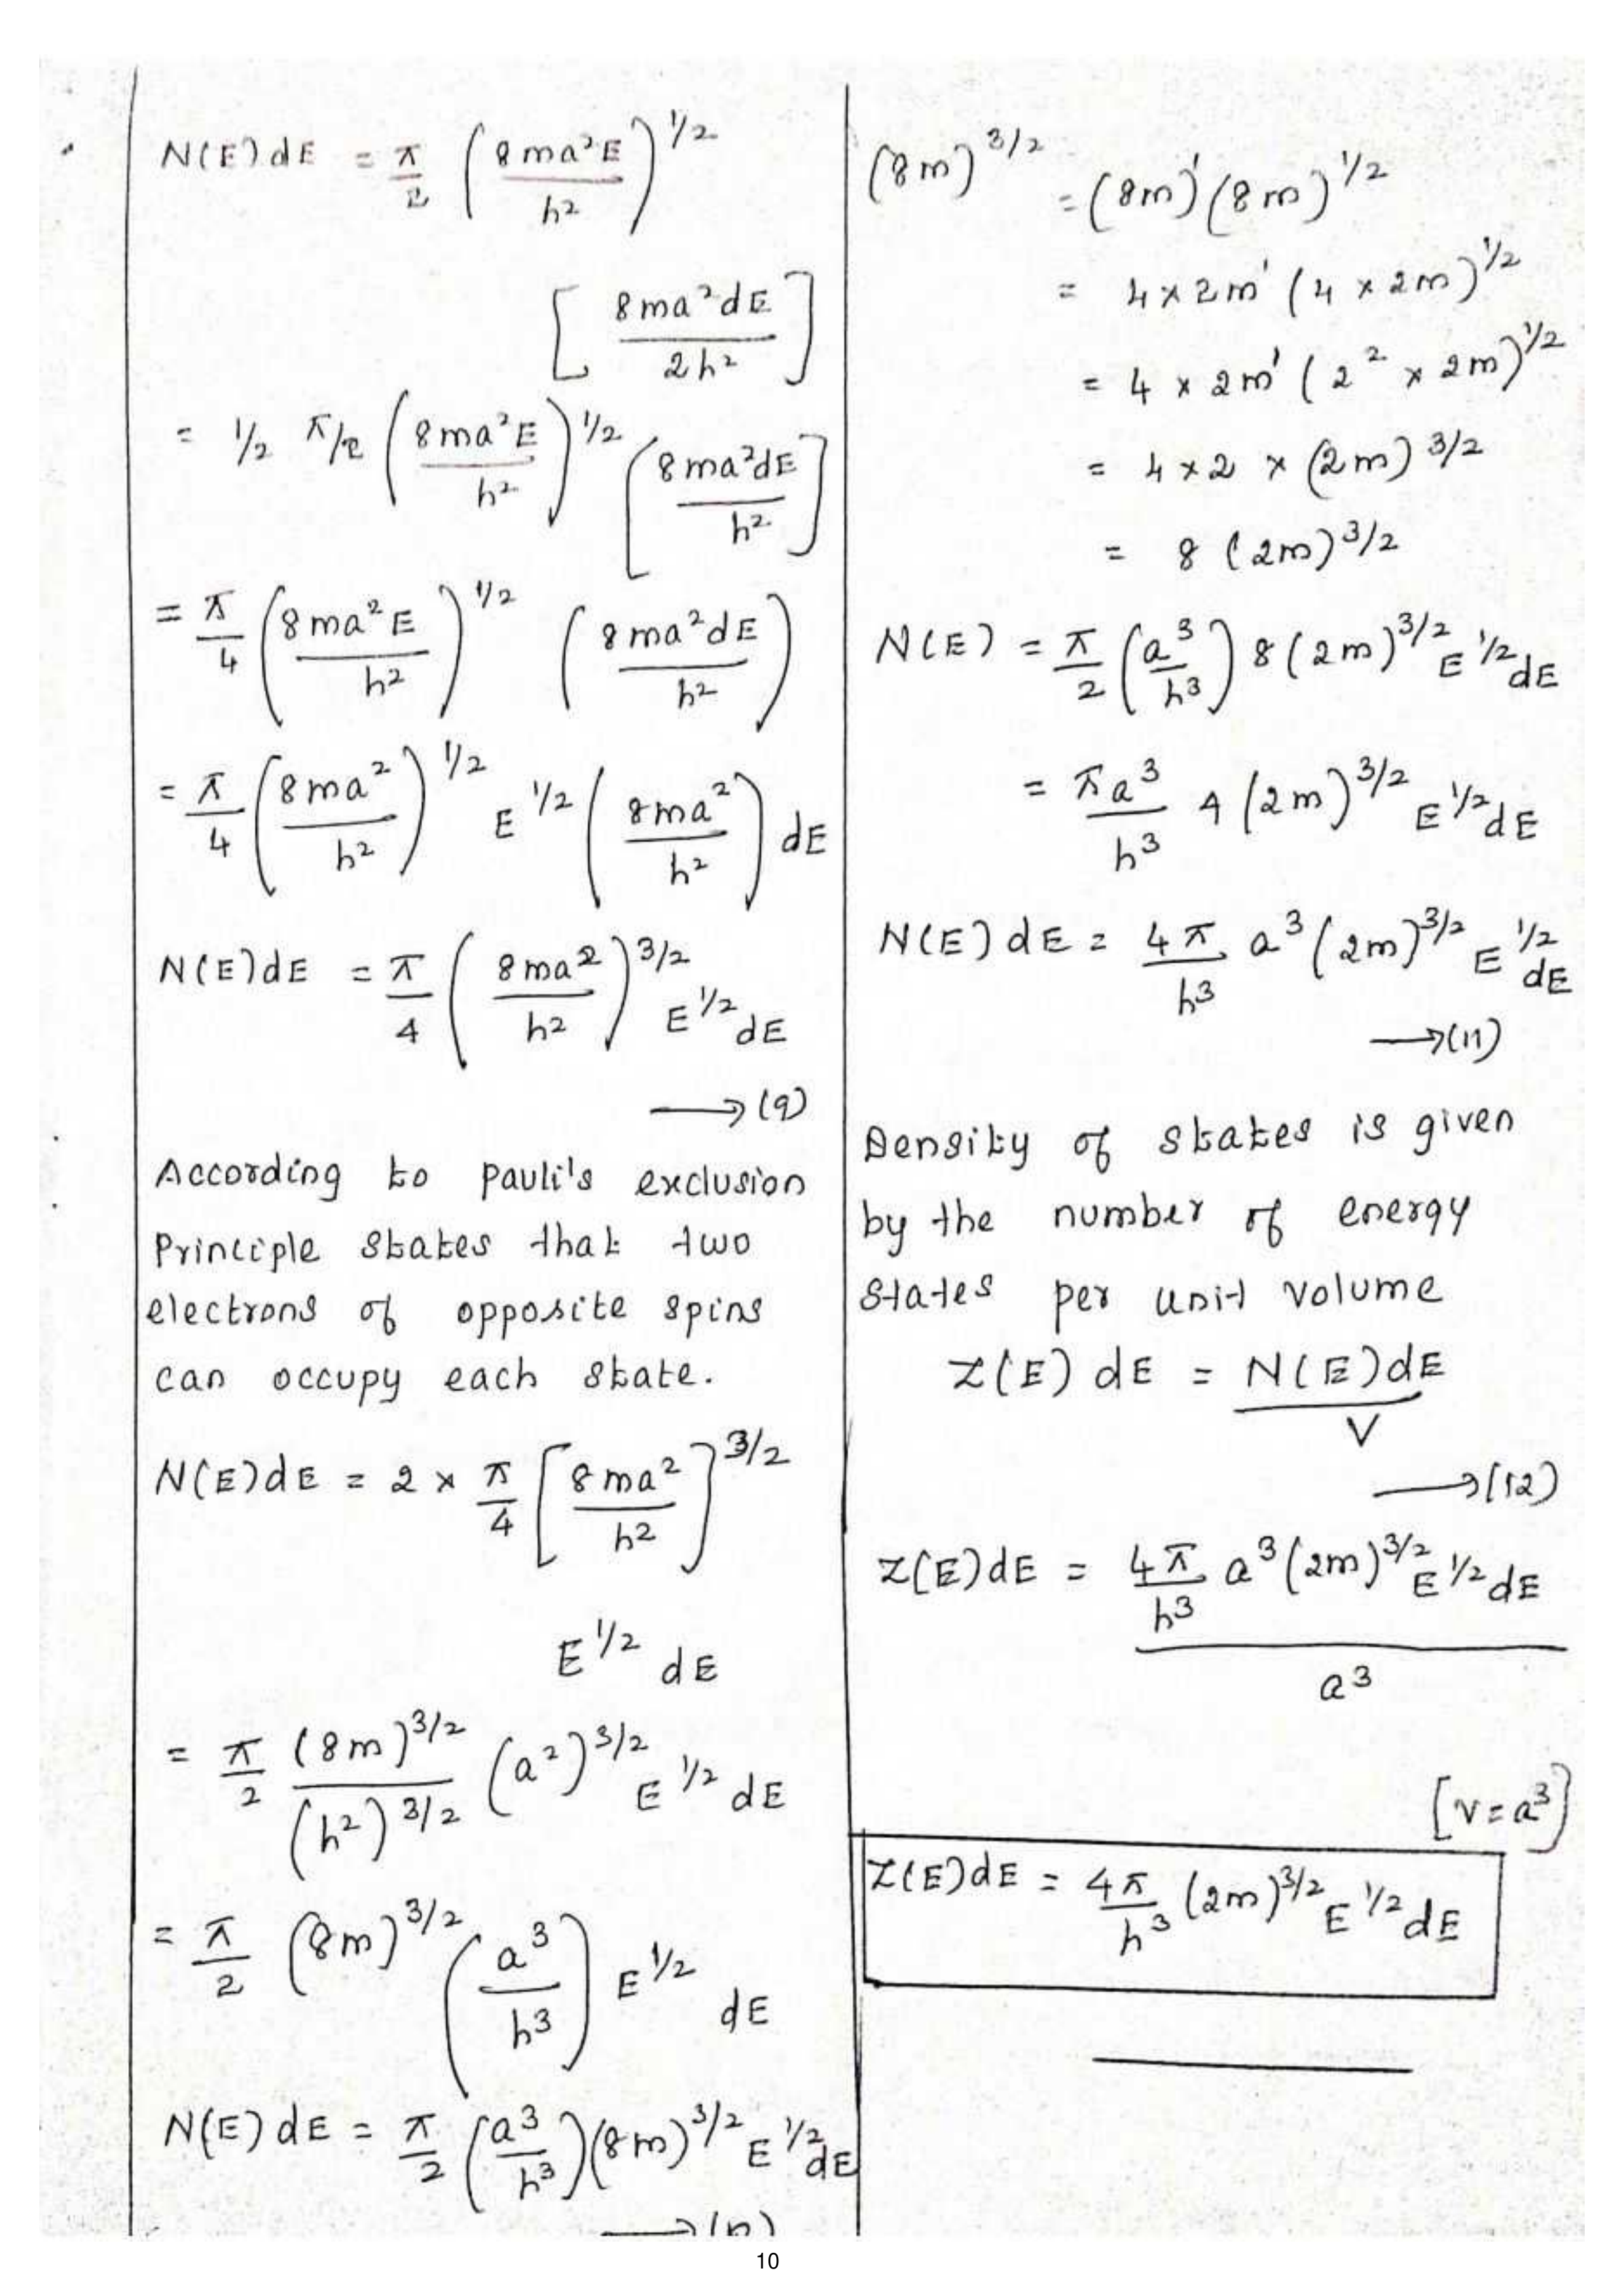 N(E)dE = π/2 (8ma²E/h²)^1/2
[8ma²dE/2h²]
= 1/2 π/2 (8ma²E/h²)^1/2 [8ma²dE/h²]
= π/4 (8ma²E/h²)^1/2 (8ma²dE/h²)
= π/4 (8ma²/h²)^1/2 E^1/2 (8ma²/h²) dE
N(E)dE = π/4 (8ma²/h²)^3/2 E^1/2 dE
→(9)
According to pauli's exclusion
Principle states that two
electrons of opposite spins
can occupy each state.
N(E)dE = 2 × π/4 [8ma²/h²]^3/2
E^1/2 dE
= π/2 (8m)^3/2/(h²)^3/2 (a²)^3/2 E^1/2 dE
= π/2 (8m)^3/2 (a³/h³) E^1/2 dE
N(E)dE = π/2 (a³/h³)(8m)^3/2 E^1/2 dE
(8m)^3/2 = (8m)¹(8m)^1/2
= 4×2m¹(4×2m)^1/2
= 4×2m¹(2²×2m)^1/2
= 4×2×(2m)^3/2
= 8(2m)^3/2
N(E) = π/2 (a³/h³) 8(2m)^3/2 E^1/2 dE
= πa³/h³ 4(2m)^3/2 E^1/2 dE
N(E)dE = 4π/h³ a³(2m)^3/2 E^1/2 dE
→(11)
Density of states is given
by the number of energy
states per unit volume
Z(E)dE = N(E)dE/V
→(12)
Z(E)dE = 4π/h³ a³(2m)^3/2 E^1/2 dE
a³
[V=a³]
Z(E)dE = 4π/h³ (2m)^3/2 E^1/2 dE
10